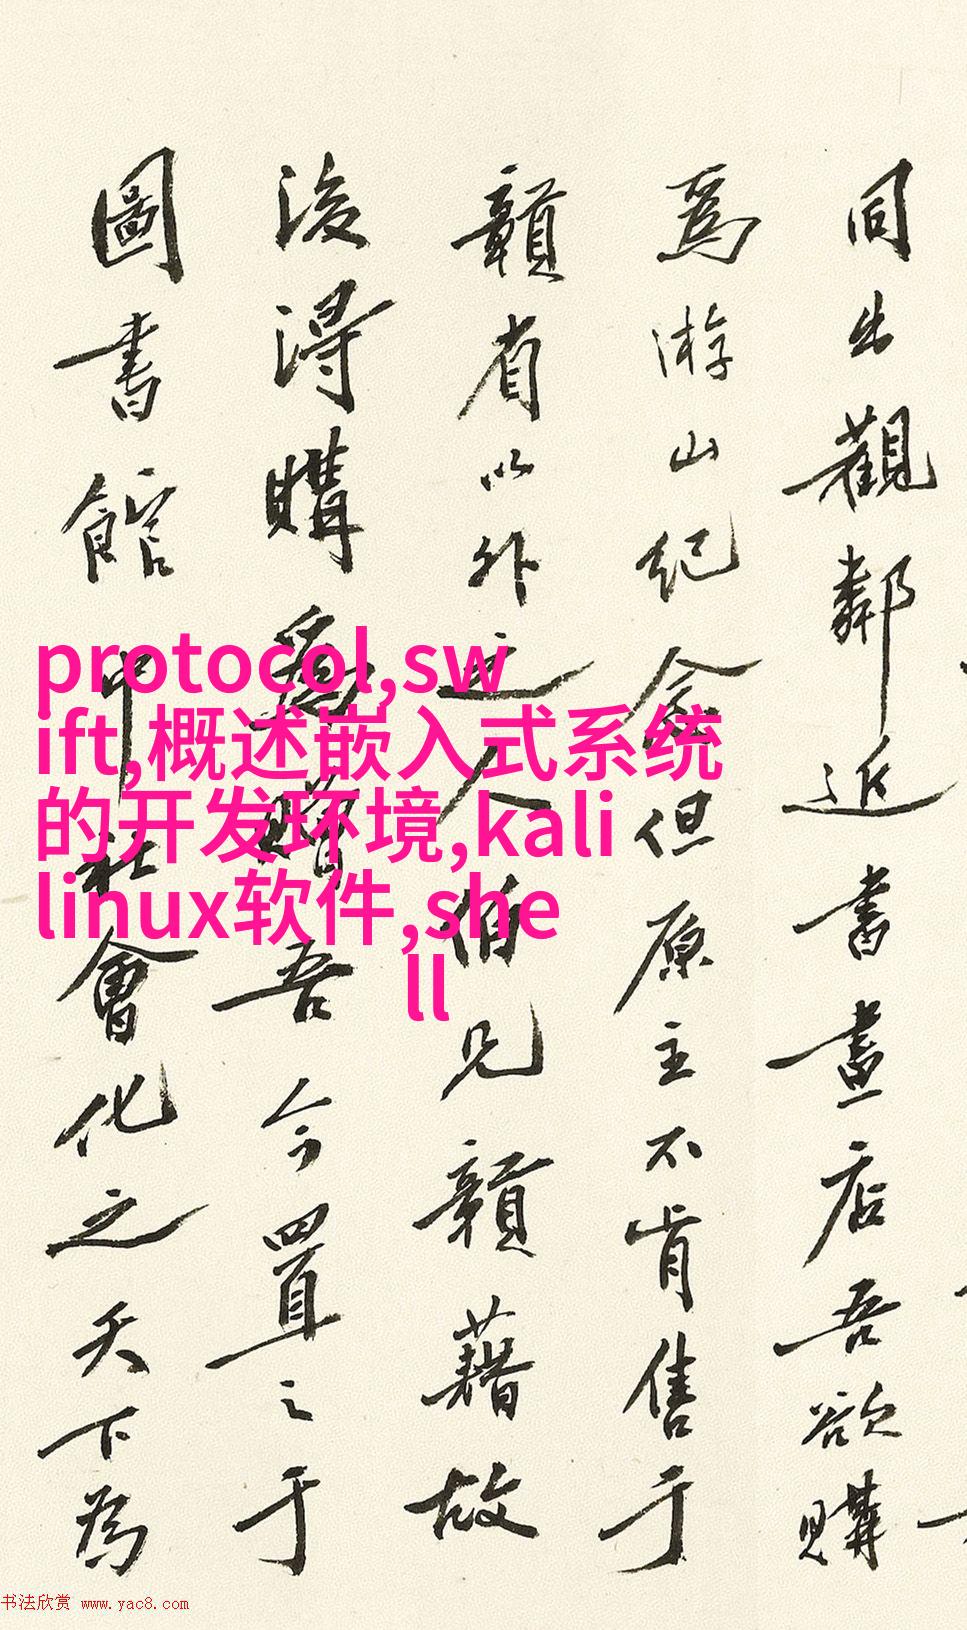 同出觀鄰近書畫店吾欲購
爲游山紀念但原主不肯售于
贛省以外之人伯兄贛籍故
後得購爲贈吾今置之于
圖書館中社會化之天下為
protocol,sw
ift,概述嵌入式系统
的开发环境,kali
linux软件,she
ll
书法欣赏 www.yac8.com